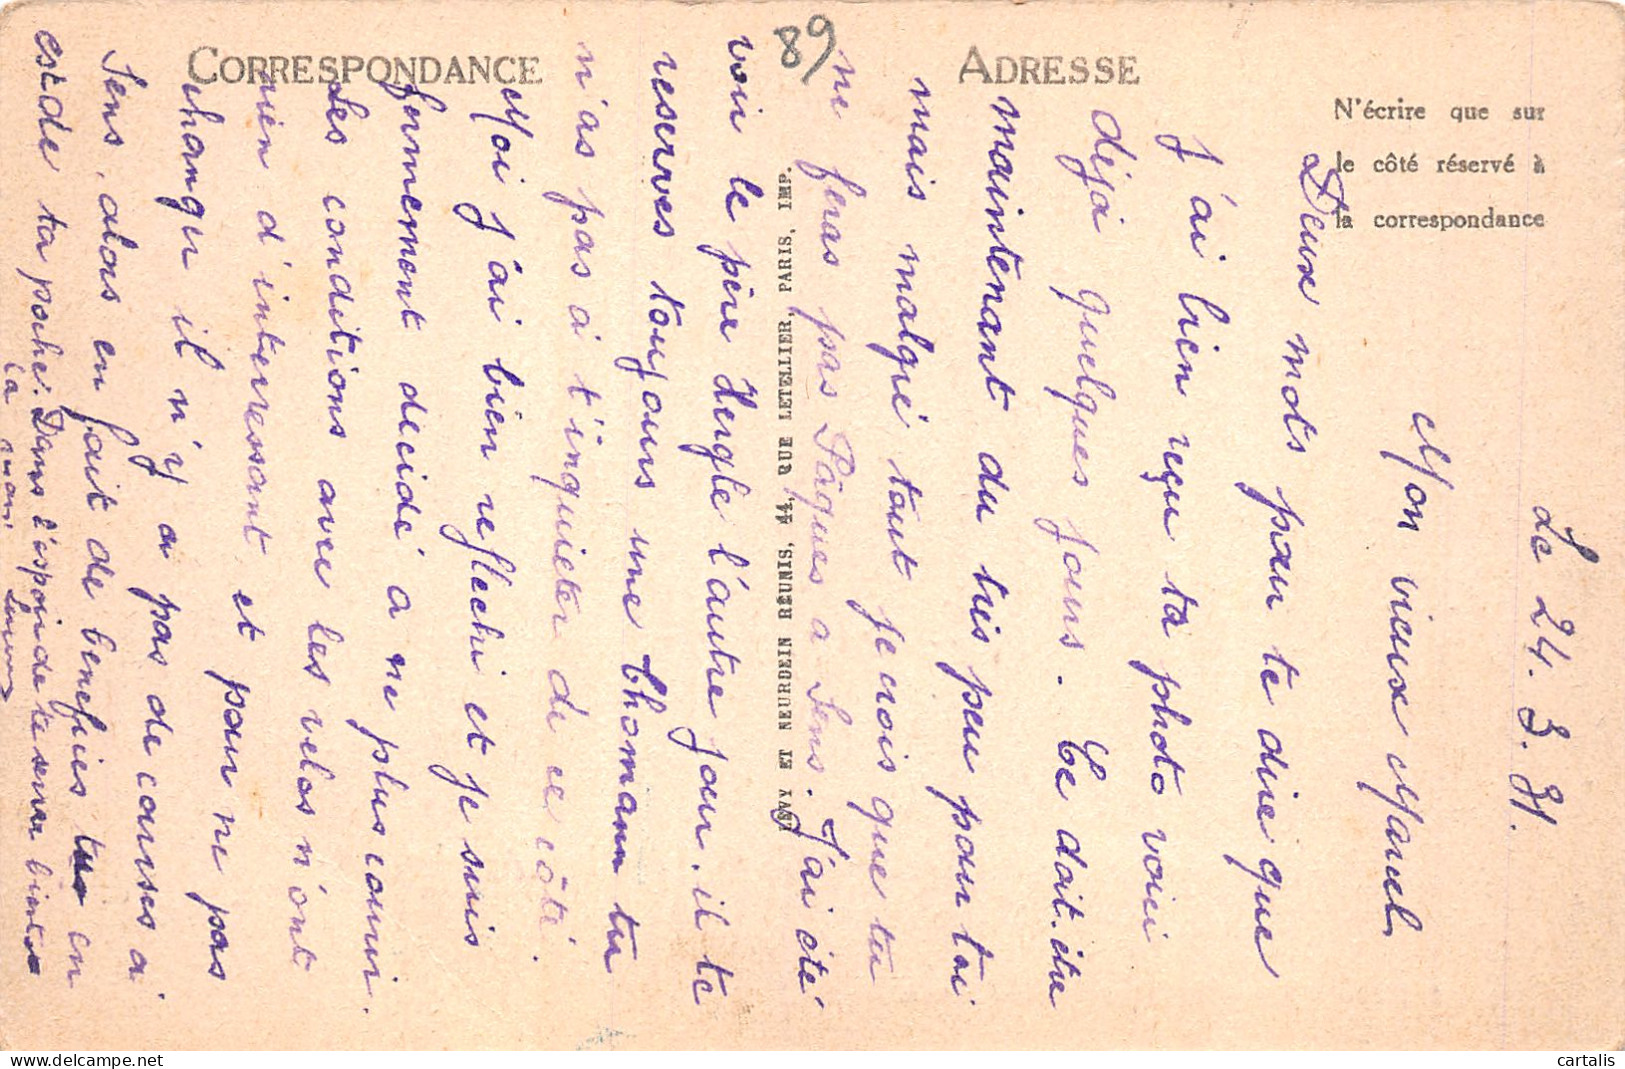 CORRESPONDANCE
ADRESSE
N'écrire que sur
le côté réservé à
la correspondance
89
LEVY ET NEURDEIN REUNIS, 44, RUE LETELLIER, PARIS, IMP.
Le 24.3.31.
Mon vieux Marcel
Deux mots pour te dire que
J'ai bien reçu ta photo voici
déjà quelques jours. Ce doit être
maintenant du tris peu pour toi
mais malgré tout je crois que tu
ne feras pas Pâques a Sens. J'ai été
voir le père l'autre jour. il te
reserves toujours une Thomann tu
n'as pas à t'inquiéter de ce côté.
Moi j'ai bien reflechi et je suis
fermement decidé a ne plus courir.
Les conditions avec les velos n'ont
rien d'interressant et pour ne pas
changer il n'y a pas de courses a
Sens, alors en fait de benefices tu en
est de ta poche. Dans l'espoir de te serrer bientot
la main